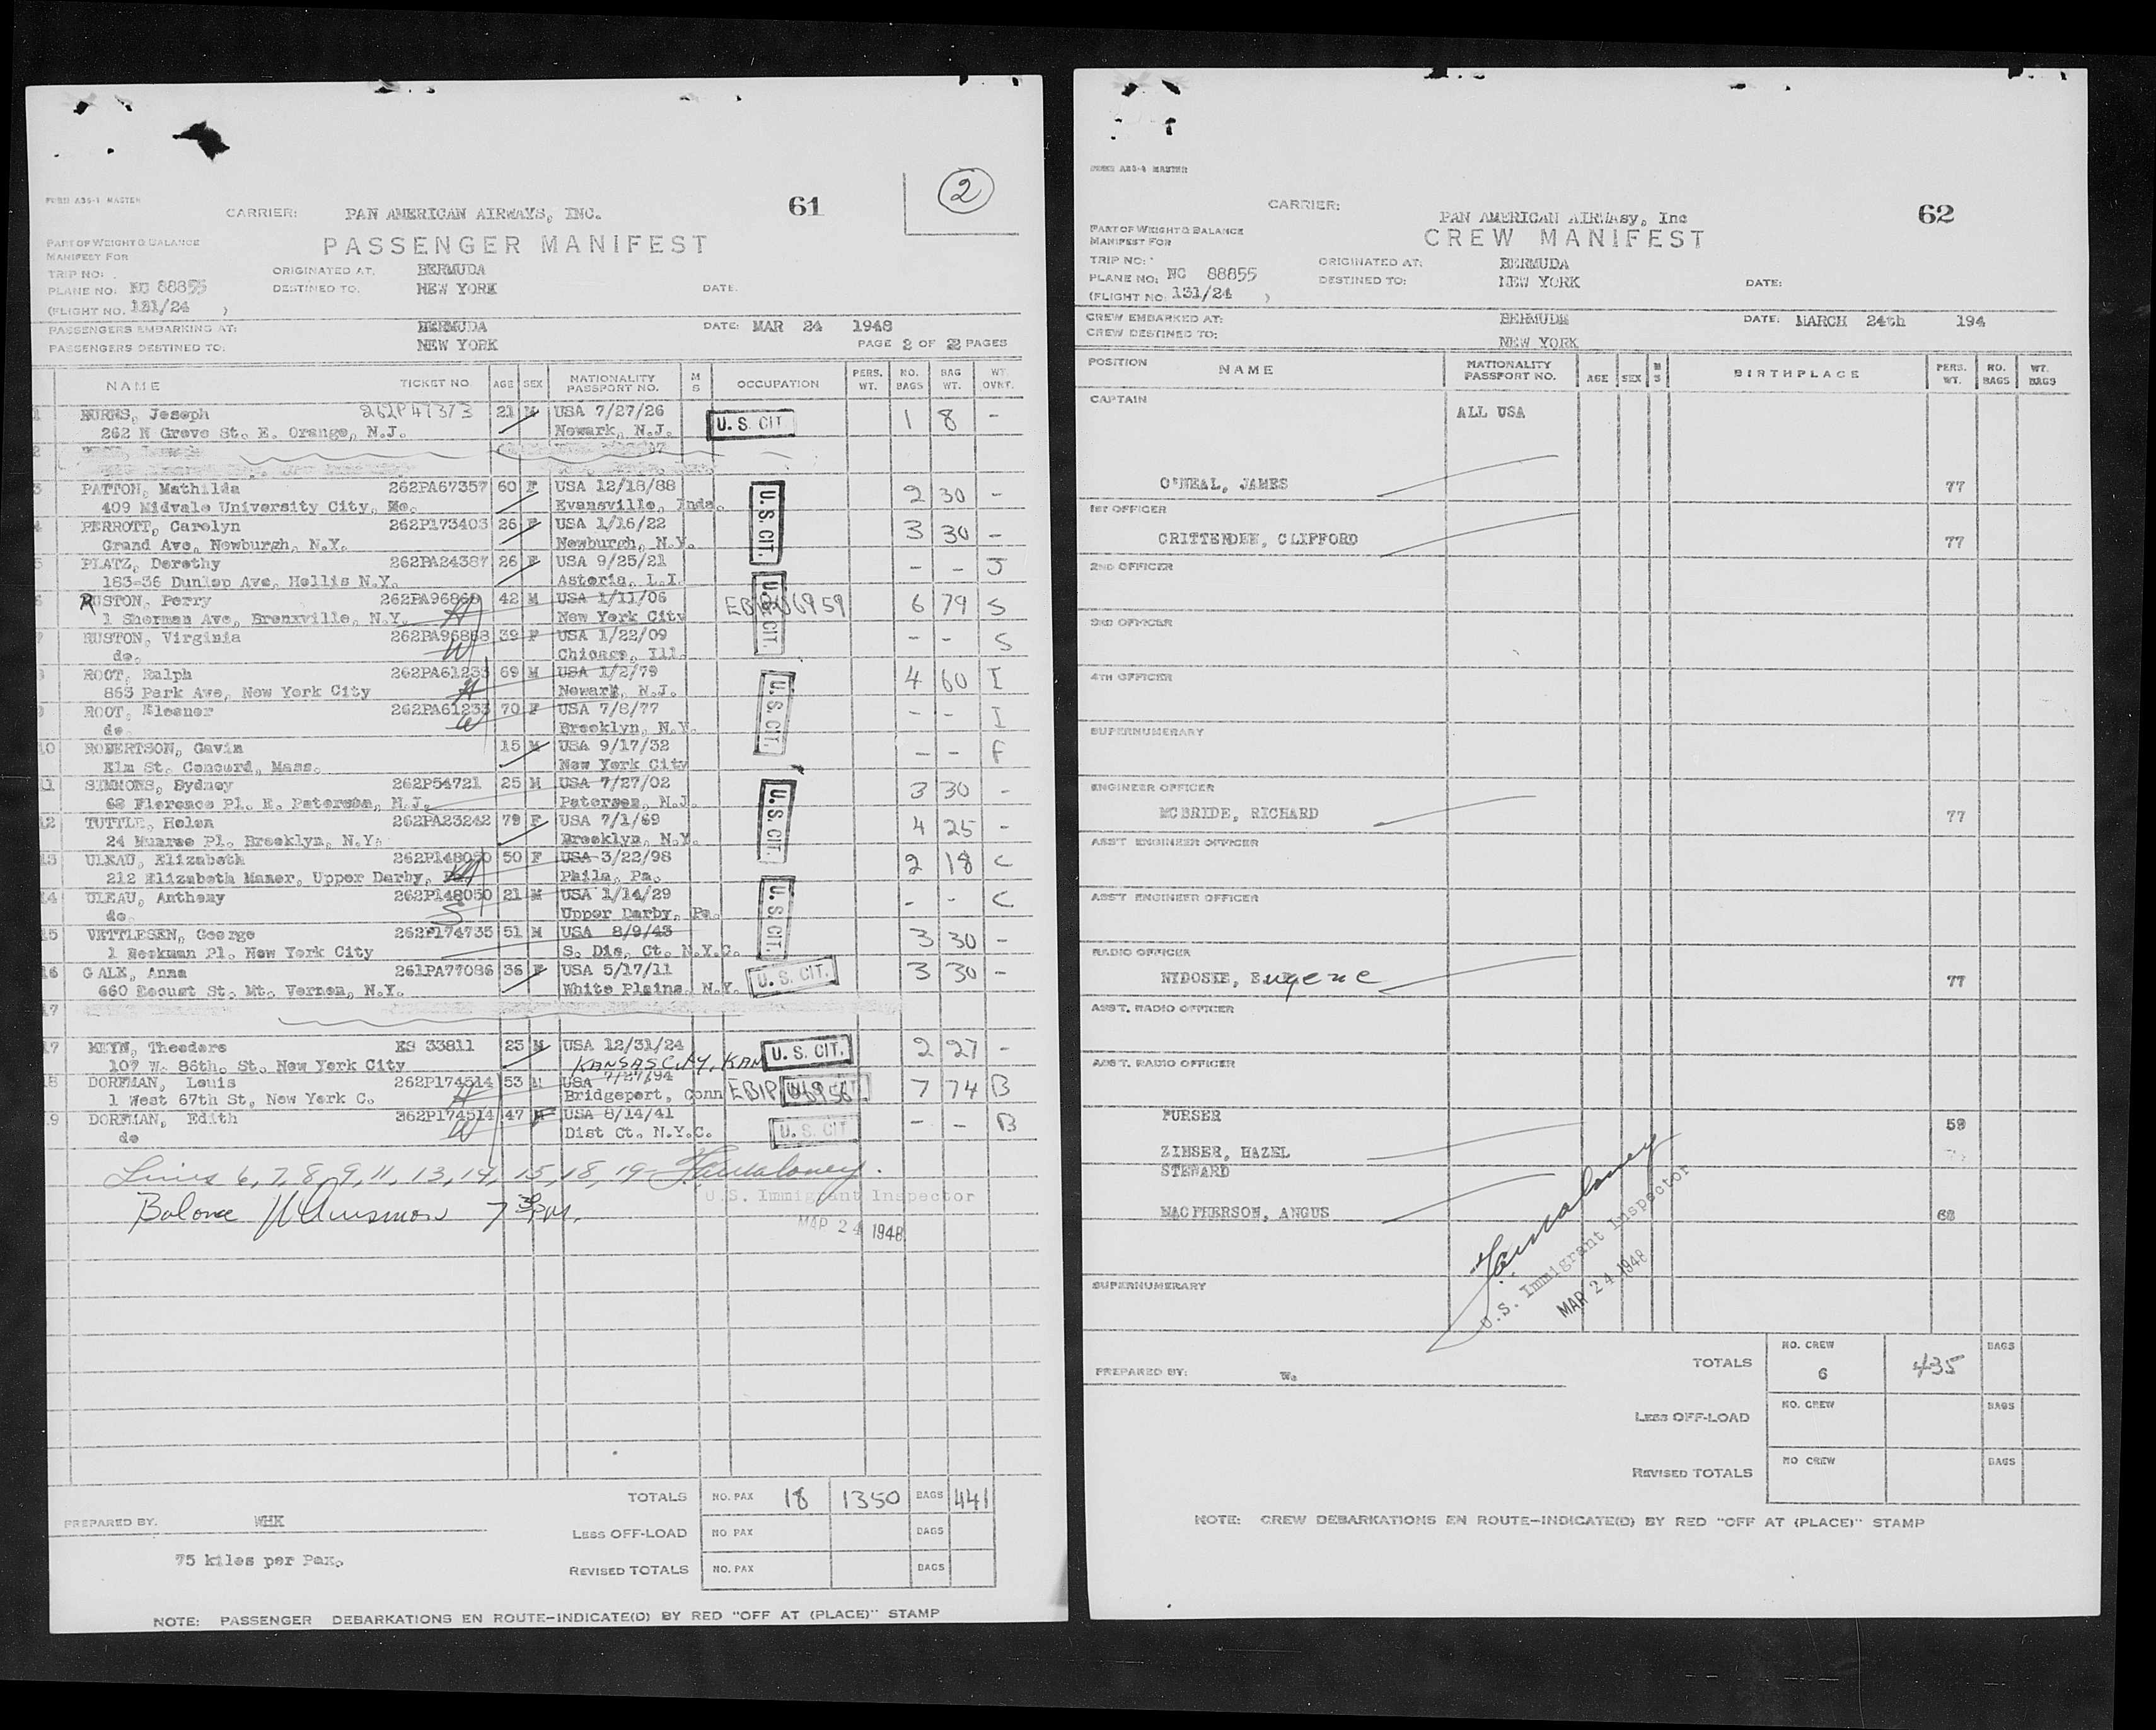 FORM ABS-1 MASTER
61
2
CARRIER: PAN AMERICAN AIRWAYS, INC.
PASSENGER MANIFEST
PART OF WEIGHT & BALANCE
MANIFEST FOR
TRIP NO:
PLANE NO: NC 88855
(FLIGHT NO. 131/24 )
ORIGINATED AT. BERMUDA
DESTINED TO. NEW YORK
DATE.
PASSENGERS EMBARKING AT: BERMUDA DATE: MAR 24 1948
PASSENGERS DESTINED TO: NEW YORK PAGE 2 OF 2 PAGES
NAME TICKET NO. AGE SEX NATIONALITY PASSPORT NO. M S OCCUPATION PERS. WT. NO. BAGS BAG WT. WT. OVNT.
1 BURNS, Joseph 262P47373 21 M USA 7/27/26 U.S. CIT 1 8 -
262 N Grove St. E. Orange, N.J. Newark, N.J.
2
3 PATTON, Mathilda 262PA67357 60 F USA 12/18/88 U.S. CIT. 2 30 -
409 Midvale University City, Mo. Evansville, Inda.
4 PERROTT, Carolyn 262P173403 26 F USA 1/16/22 3 30 -
Grand Ave, Newburgh, N.Y. Newburgh, N.Y.
5 PLATZ, Dorothy 262PA24387 26 F USA 9/25/21 - - J
183-36 Dunlop Ave, Hollis N.Y. Astoria, L.I.
6 RUSTON, Perry 262PA96869 42 M USA 1/11/06 U.S. CIT. 6 79 S
1 Sherman Ave, Bronxville, N.Y. H New York City
7 RUSTON, Virginia 262PA96868 39 F USA 1/22/09 - - S
do. W Chicago, Ill.
8 ROOT, Ralph 262PA61233 69 M USA 1/2/79 U.S. CIT. 4 60 I
863 Park Ave, New York City H Newark, N.J.
9 ROOT, Eleanor 262PA61233 70 F USA 7/8/77 - - I
do. W Brooklyn, N.Y.
10 ROBERTSON, Gavin 15 M USA 9/17/32 - - F
Elm St. Concord, Mass. New York City
11 SIMMONS, Sydney 262P54721 25 M USA 7/27/02 U.S. CIT. 3 30 -
68 Florence Pl. E. Paterson, N.J. Paterson, N.J.
12 TUTTLE, Helen 262PA23242 79 F USA 7/1/69 4 25 -
24 Munroe Pl. Brooklyn, N.Y. Brooklyn, N.Y.
13 ULEAU, Elizabeth 262P148050 50 F USA 3/22/98 U.S. CIT. 2 18 C
212 Elizabeth Maner, Upper Darby, Phila, Pa.
14 ULEAU, Anthony 262P148050 21 M USA 1/14/29 - - C
do. S Upper Darby, Pa.
15 VETTLESEN, George 262P174735 51 M USA 8/9/43 3 30 -
1 Beekman Pl. New York City S. Dis. Ct. N.Y.C.
16 GALE, Anna 261PA77086 36 F USA 5/17/11 U.S. CIT. 3 30 -
660 Locust St. Mt. Vernon, N.Y. White Plains, N.Y.
17
17 MEYN, Theodore ES 33811 23 M USA 12/31/24 U.S. CIT. 2 27 -
107 W. 86th. St. New York City KANSAS CITY, KAN
18 DORFMAN, Louis 262P174514 53 M USA 7/27/94 7 74 B
1 West 67th St, New York C. H Bridgeport, Conn EBIP
19 DORFMAN, Edith 362P174514 47 F USA 8/14/41 U.S. CIT. - - B
do W Dist Ct. N.Y.C.
Lines 6, 7, 8, 9, 11, 13, 14, 15, 18, 19
U.S. Immigrant Inspector
Balance 7 30 PM.
MAR 24 1948
TOTALS NO. PAX 18 1350 BAGS 441
PREPARED BY. WHK
LESS OFF-LOAD NO PAX BAGS
75 kilos per Pax.
REVISED TOTALS NO. PAX BAGS
NOTE: PASSENGER DEBARKATIONS EN ROUTE-INDICATE(D) BY RED "OFF AT (PLACE)" STAMP
FORM ABS-4 MASTER
62
CARRIER: PAN AMERICAN AIRWAsy, Inc
CREW MANIFEST
PART OF WEIGHT & BALANCE
MANIFEST FOR
TRIP NO:
PLANE NO: NC 88855
(FLIGHT NO. 131/24 )
ORIGINATED AT: BERMUDA
DESTINED TO: NEW YORK
DATE:
CREW EMBARKED AT: BERMUDA DATE: MARCH 24th 194
CREW DESTINED TO: NEW YORK
POSITION NAME NATIONALITY PASSPORT NO. AGE SEX M S BIRTHPLACE PERS. WT. NO. BAGS WT. BAGS
CAPTAIN ALL USA
O'NEAL, JAMES 77
1ST OFFICER
CRITTENDEN, CLIFFORD 77
2ND OFFICER
3RD OFFICER
4TH OFFICER
SUPERNUMERARY
ENGINEER OFFICER
MC BRIDE, RICHARD 77
ASS'T ENGINEER OFFICER
ASS'T ENGINEER OFFICER
RADIO OFFICER
NYDOSKE, Eugene 77
ASS'T. RADIO OFFICER
ASS'T. RADIO OFFICER
PURSER 59
ZINSER, HAZEL
STEWARD
MACPHERSON, ANGUS 68
U.S. Immigrant Inspector
MAR 24 1948
SUPERNUMERARY
TOTALS NO. CREW 6 435 BAGS
PREPARED BY: W.
LESS OFF-LOAD NO. CREW BAGS
REVISED TOTALS NO CREW BAGS
NOTE: CREW DEBARKATIONS EN ROUTE-INDICATE(D) BY RED "OFF AT (PLACE)" STAMP